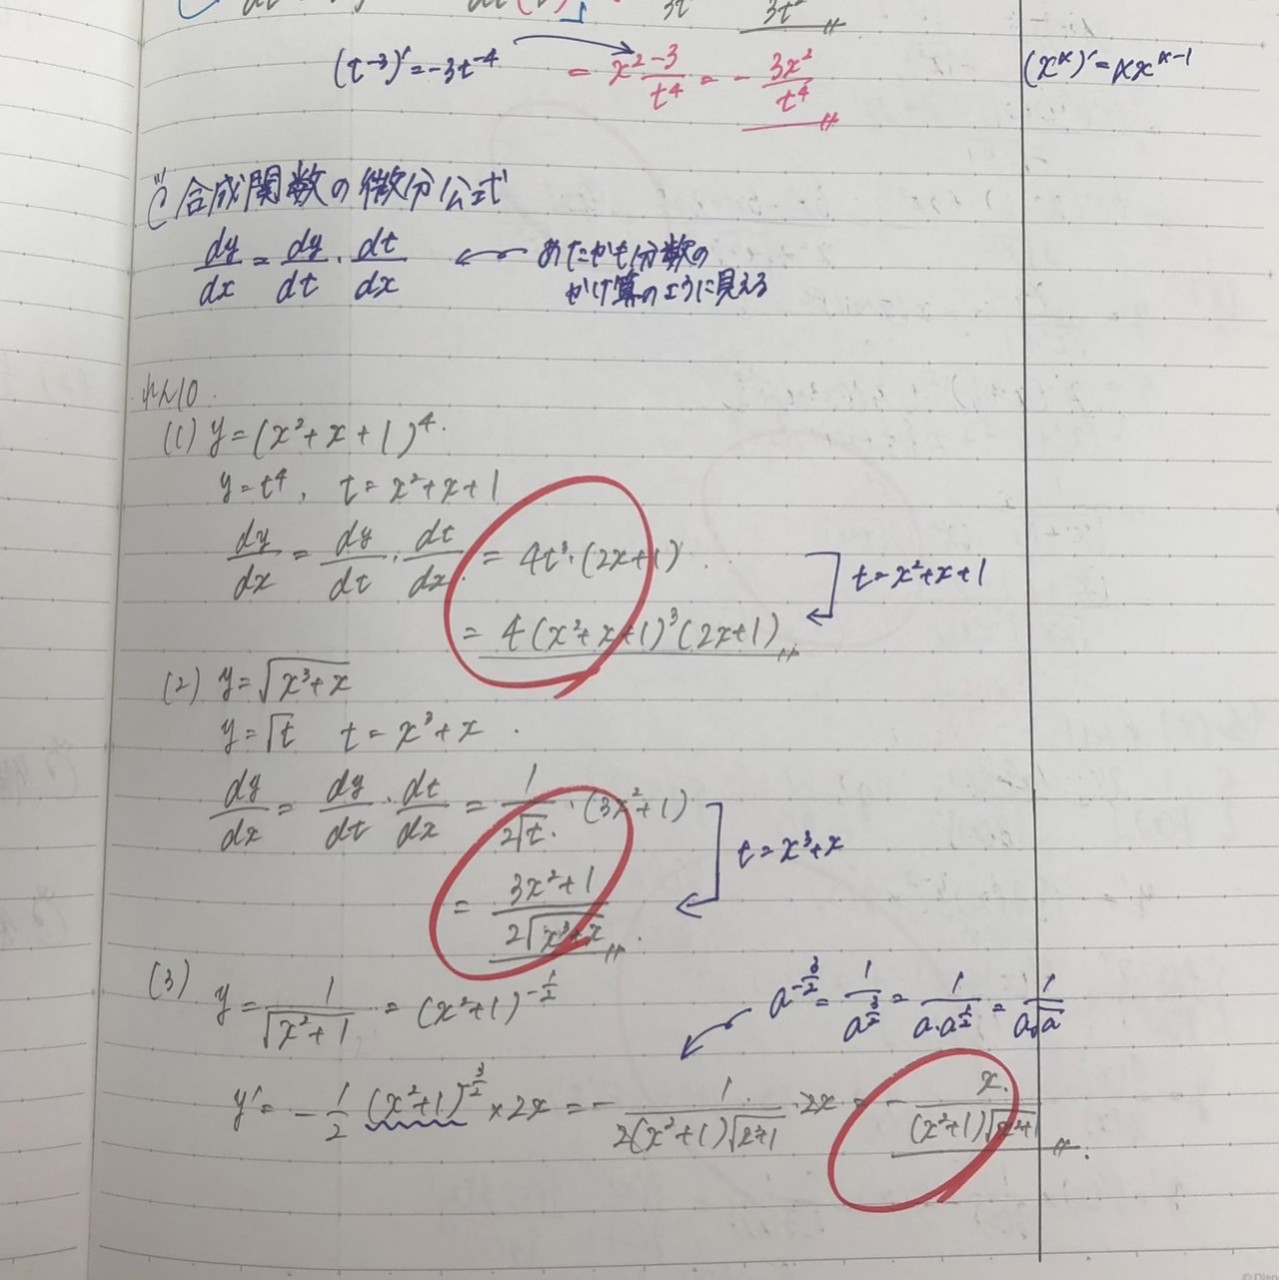 (t⁻³)' = -3t⁻⁴
= x² -3/t⁴ = - 3x²/t⁴
(x^α)' = αx^(α-1)
合成関数の微分公式
dy/dx = dy/dt · dt/dx
あたかも分数の
かけ算のように見える
れん10.
(1) y = (x² + x + 1)⁴.
y = t⁴, t = x² + x + 1
dy/dx = dy/dt · dt/dx = 4t³ · (2x+1)
t = x² + x + 1
= 4(x² + x + 1)³(2x+1)
(2) y = √(x³ + x)
y = √t t = x³ + x
dy/dx = dy/dt · dt/dx = 1/(2√t) · (3x² + 1)
t = x³ + x
= (3x² + 1)/(2√(x³ + x))
(3) y = 1/√(x² + 1) = (x² + 1)^(-1/2)
a^(-3/2) = 1/a^(3/2) = 1/(a·a^(1/2)) = 1/(a√a)
y' = - 1/2 (x² + 1)^(-3/2) × 2x = - 1/(2(x² + 1)√(x² + 1)) · 2x = - x/((x² + 1)√(x² + 1))